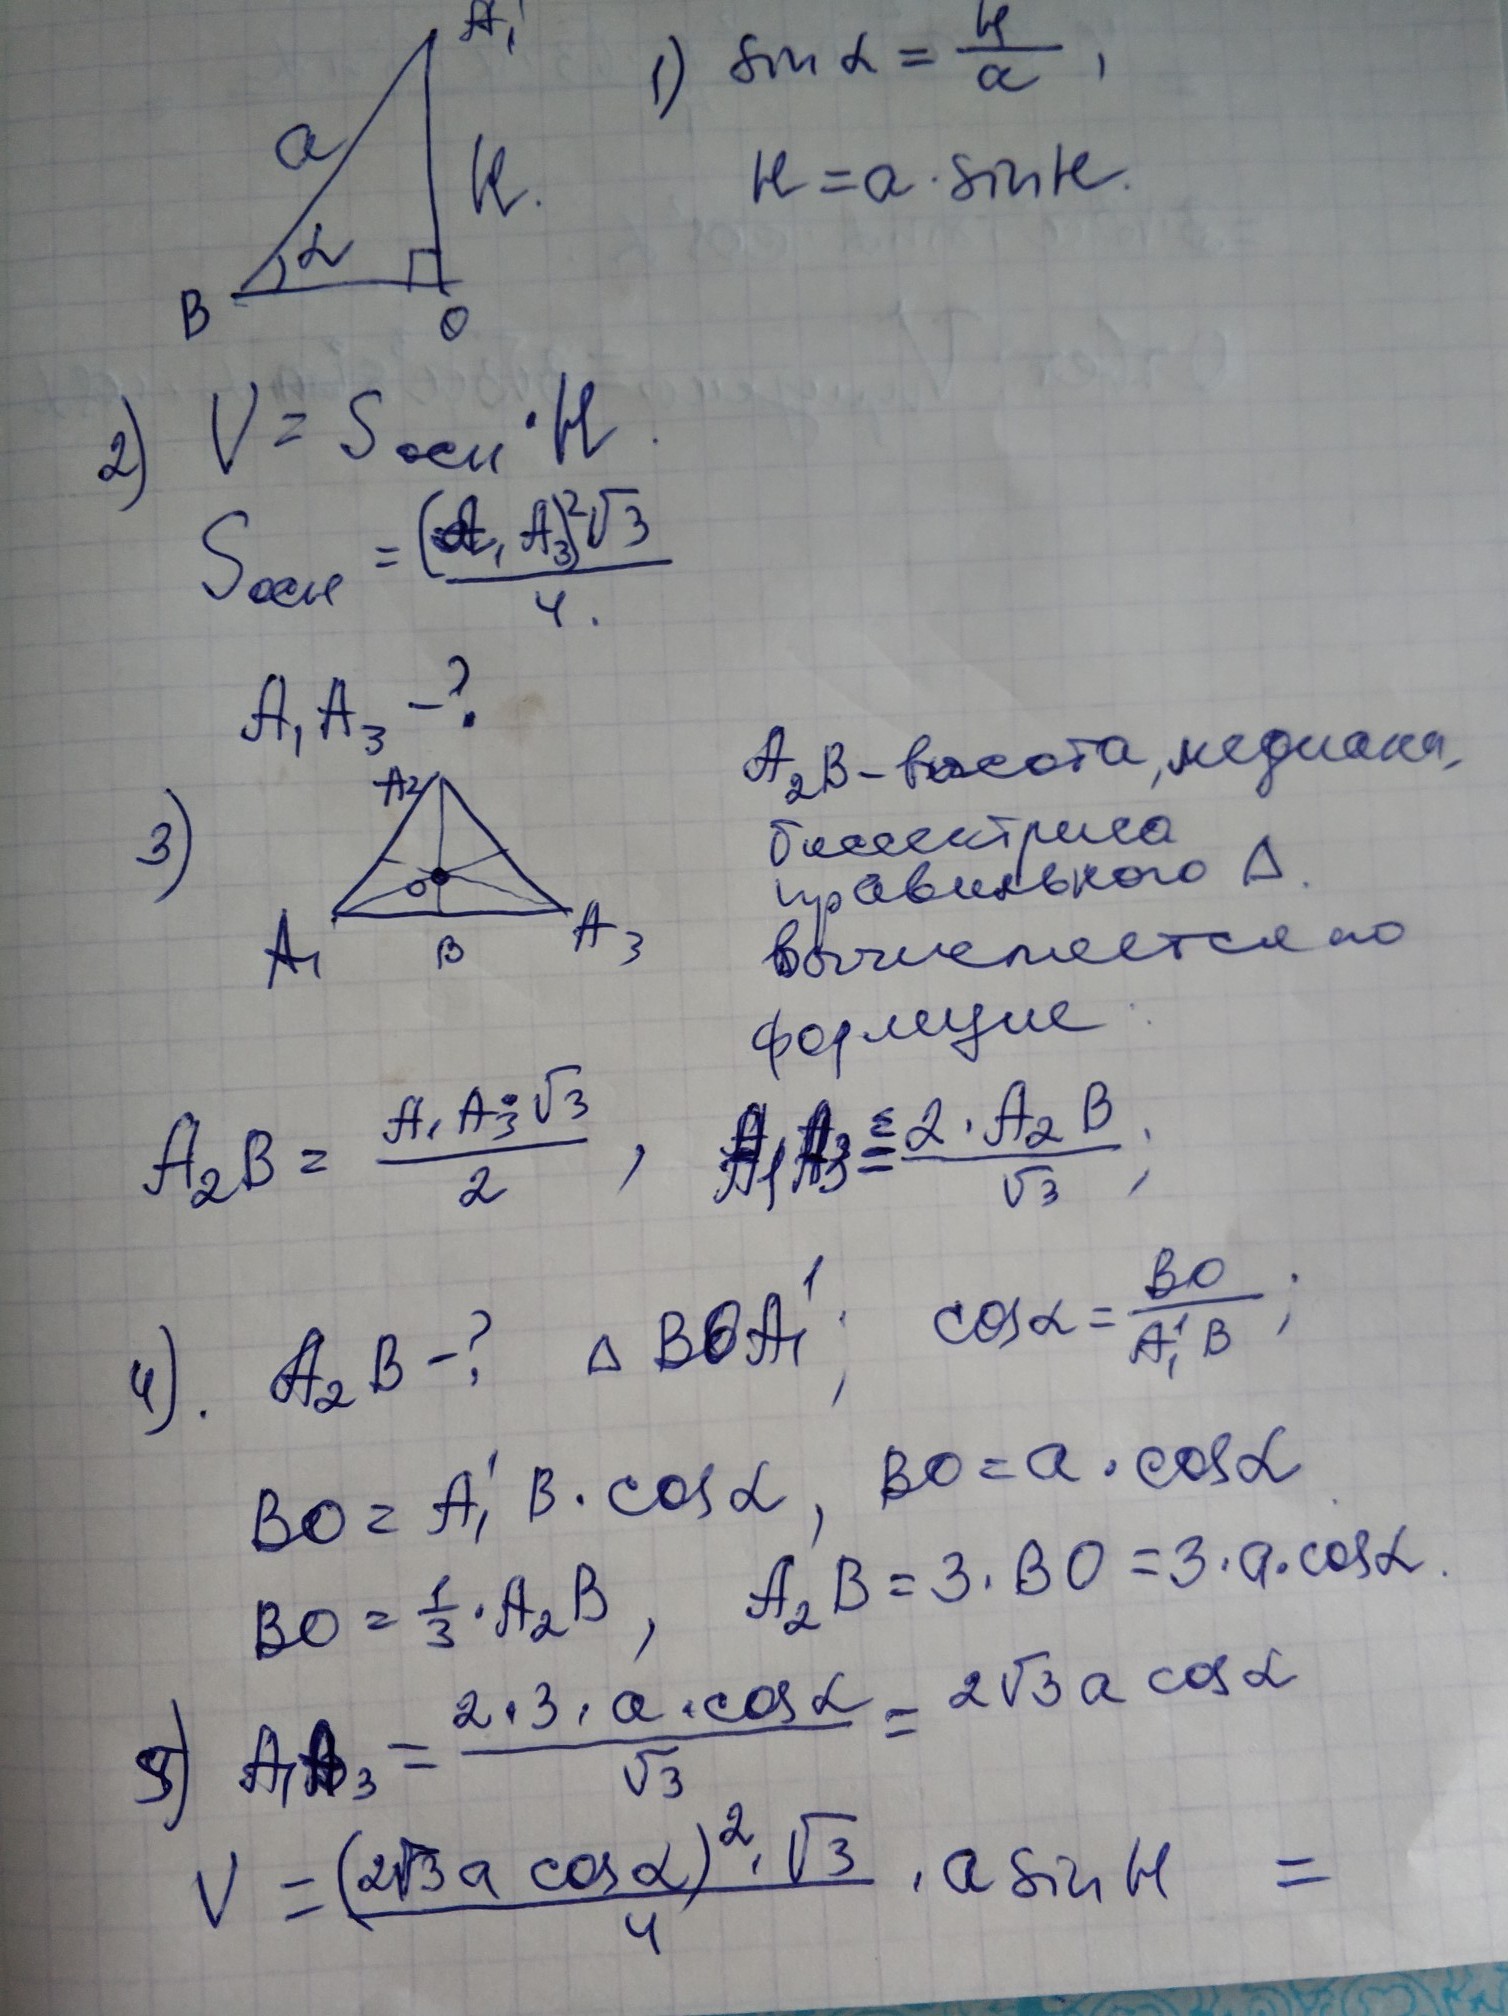 A₁'
a
H.
α
B
O
1) sin α = H/a ,
H = a · sin H.
2) V = Sосн · H.
Sосн = (A₁A₃)²√3 / 4.
A₁A₃ – ?
3) A₂
O
A₁
B
A₃
A₂B – высота, медиана,
биссектриса
правильного Δ.
вычисляется по
формуле :
A₂B = A₁A₃·√3 / 2 , A₁A₃ = 2 · A₂B / √3 ;
4). A₂B – ? Δ BOA₁' ; cos α = BO / A₁'B ;
BO = A₁'B · cos α , BO = a · cos α
BO = 1/3 · A₂B , A₂B = 3 · BO = 3 · a · cos α .
5) A₁A₃ = 2 · 3 · a · cos α / √3 = 2√3 a cos α
V = (2√3 a cos α)² · √3 / 4 · a sin H =